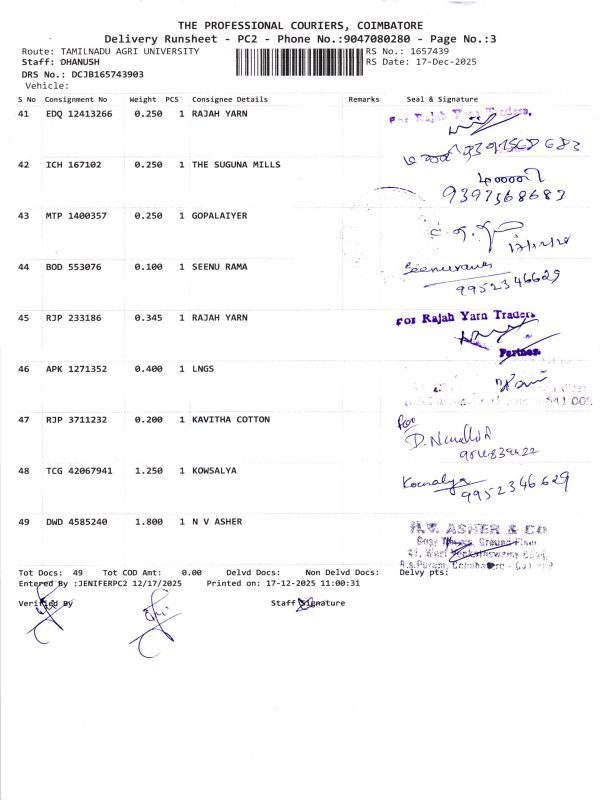 THE PROFESSIONAL COURIERS, COIMBATORE
Delivery Runsheet - PC2 - Phone No.:9047080280 - Page No.:3
Route: TAMILNADU AGRI UNIVERSITY RS No.: 1657439
Staff: DHANUSH RS Date: 17-Dec-2025
DRS No.: DCJB165743903
Vehicle:
S No Consignment No Weight PCS Consignee Details Remarks Seal & Signature
41 EDQ 12413266 0.250 1 RAJAH YARN For Rajah Yarn Traders,
42 ICH 167102 0.250 1 THE SUGUNA MILLS
9397568683
43 MTP 1400357 0.250 1 GOPALAIYER
44 BOD 553076 0.100 1 SEENU RAMA Seenurama
9952346629
45 RJP 233186 0.345 1 RAJAH YARN For Rajah Yarn Traders
Partner.
46 APK 1271352 0.400 1 LNGS
47 RJP 3711232 0.200 1 KAVITHA COTTON For
48 TCG 42067941 1.250 1 KOWSALYA Kowsalya
9952346629
49 DWD 4585240 1.800 1 N V ASHER N.V. ASHER & CO
41, West
R.S.Puram, Coimbatore -
Tot Docs: 49 Tot COD Amt: 0.00 Delvd Docs: Non Delvd Docs: Delvy pts:
Entered By :JENIFERPC2 12/17/2025 Printed on: 17-12-2025 11:00:31
Verified By Staff Signature